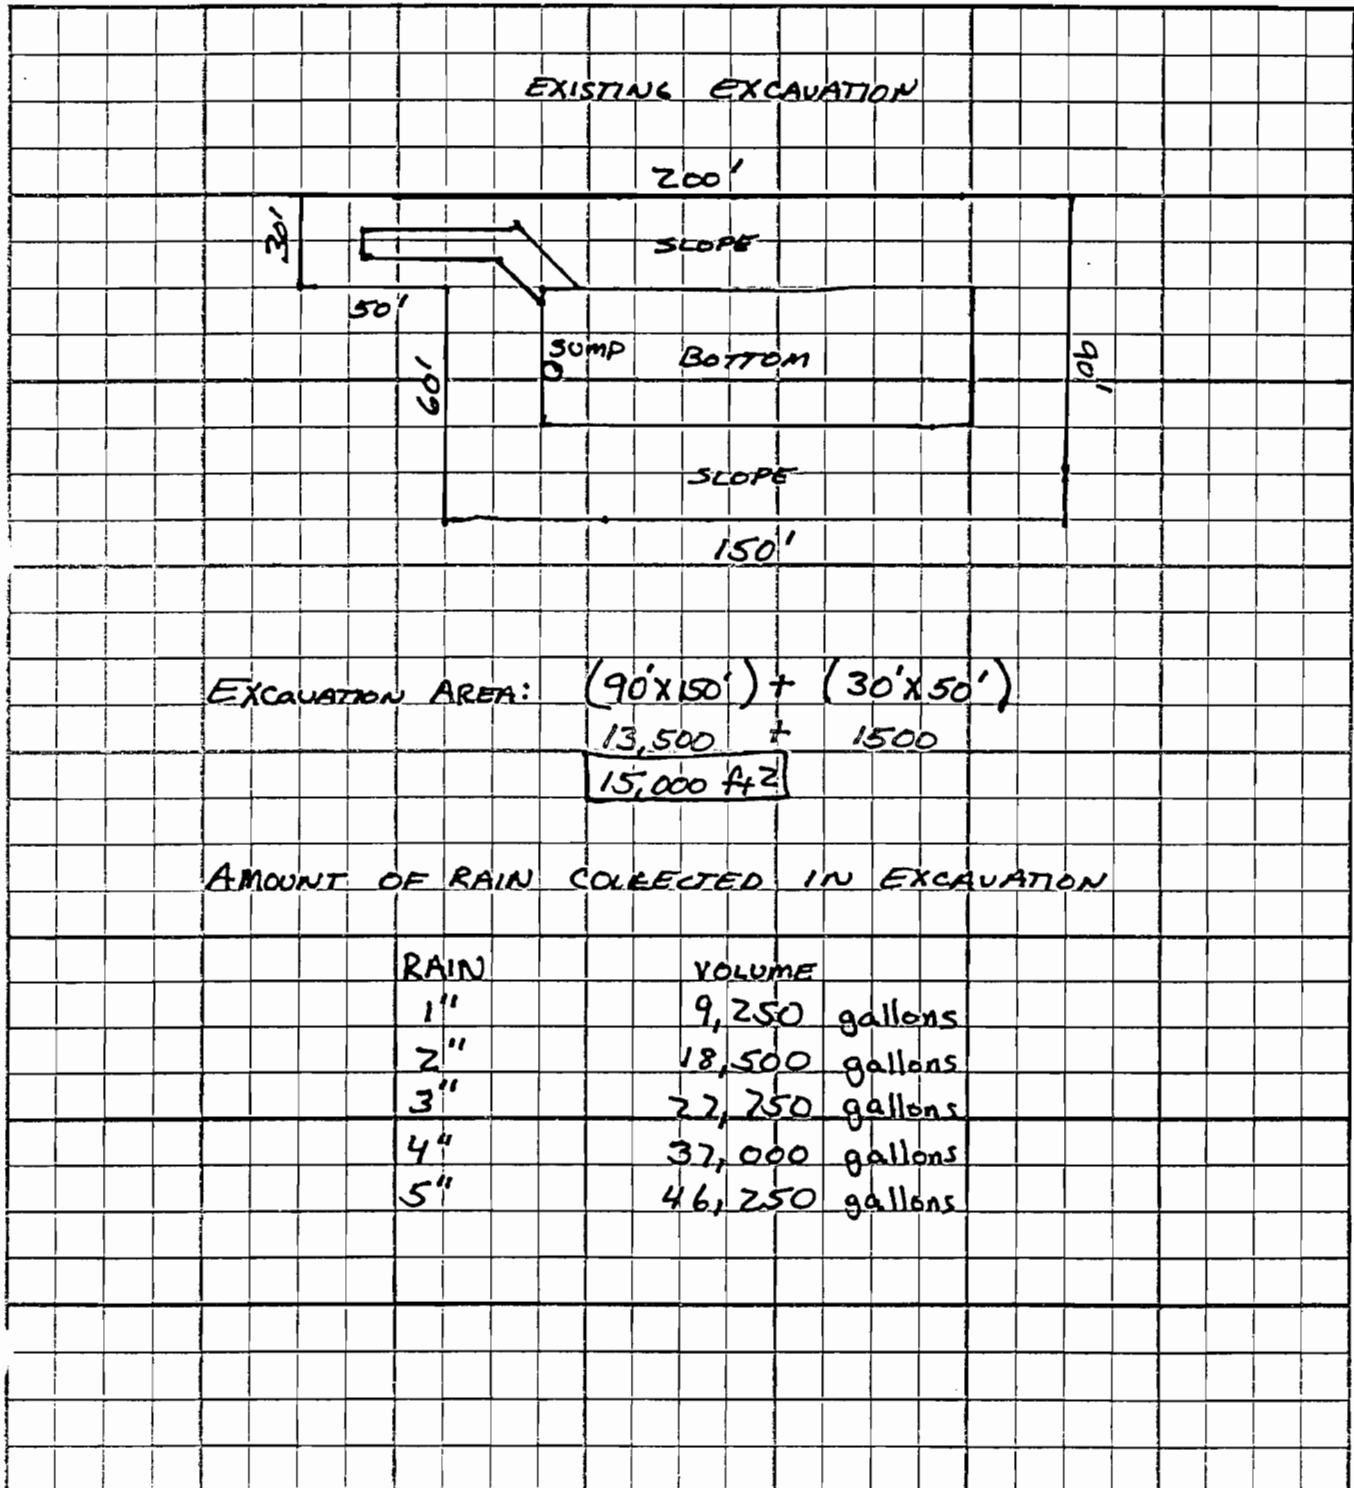 EXISTING EXCAVATION
200'
30'
SLOPE
50'
60'
SUMP
BOTTOM
90'
SLOPE
150'
EXCAVATION AREA: (90'X150') + (30'X50')
13,500 + 1500
15,000 ft2
AMOUNT OF RAIN COLLECTED IN EXCAVATION
RAIN VOLUME
1" 9,250 gallons
2" 18,500 gallons
3" 27,750 gallons
4" 37,000 gallons
5" 46,250 gallons